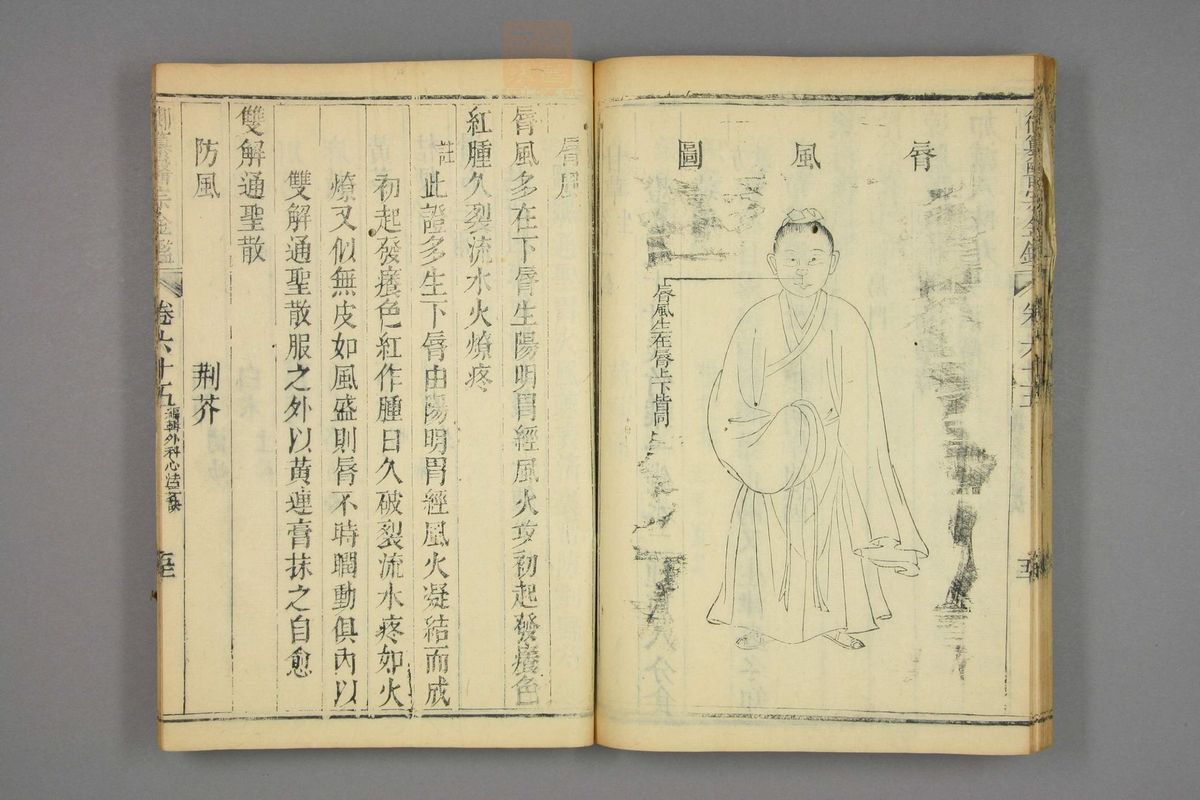 脣風圖
脣風生在脣上下皆同
脣風
脣風多在下脣生陽明胃經風火攻初起發癢色
紅腫久裂流水火燎疼
註此證多生下脣由陽明胃經風火凝結而成
初起發癢色紅作腫日久破裂流水疼如火
燎又似無皮如風盛則脣不時瞤動俱內以
雙解通聖散服之外以黃連膏抹之自愈
雙解通聖散
防風 荆芥
卷六十五 編輯外科心法要訣